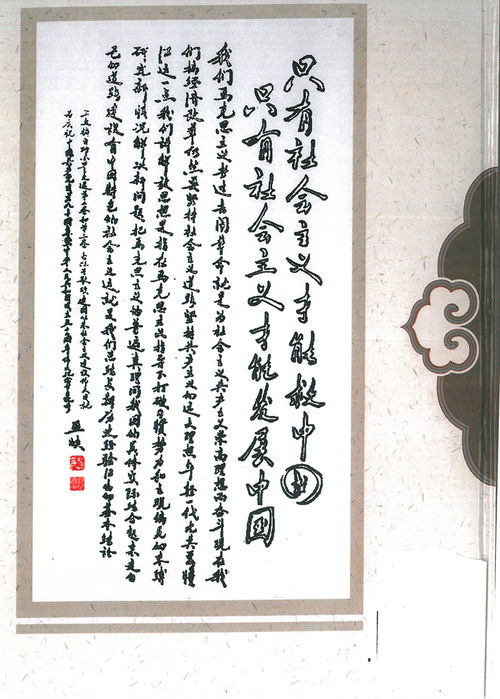 只有社会主义才能救中国
只有社会主义才能发展中国
我们马克思主义者过去闹革命就是为社会主义共产主义崇高理想而奋斗现在我
们搞经济改革仍然要坚持社会主义道路坚持共产主义的远大理想年轻一代尤其要懂
得这一点我们讲解放思想是指在马克思主义指导下打破习惯势力和主观偏见的束缚
研究新情况解决新问题把马克思主义的普遍真理同我国的具体实际结合起来走自
己的道路建设有中国特色的社会主义这就是我们总结长期历史经验得出的基本结论